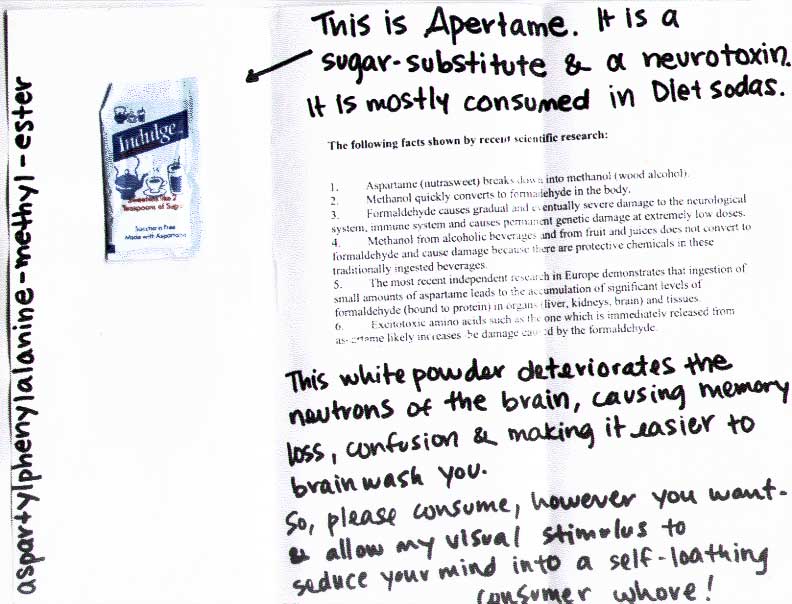 aspartylphenylalanine-methyl-ester
Indulge
Sweetens like 2
Teaspoons of
Saccharin Free
Made with Aspartame
This is Apertame. It is a
sugar-substitute & a neurotoxin.
It is mostly consumed in Diet sodas.
The following facts shown by recent scientific research:
1. Aspartame (nutrasweet) breaks down into methanol (wood alcohol).
2. Methanol quickly converts to formaldehyde in the body.
3. Formaldehyde causes gradual and eventually severe damage to the neurological
system, immune system and causes permanent genetic damage at extremely low doses.
4. Methanol from alcoholic beverages and from fruit and juices does not convert to
formaldehyde and cause damage because there are protective chemicals in these
traditionally ingested beverages.
5. The most recent independent research in Europe demonstrates that ingestion of
small amounts of aspartame leads to the accumulation of significant levels of
formaldehyde (bound to protein) in organs (liver, kidneys, brain) and tissues.
6. Excitotoxic amino acids such as the one which is immediately released from
aspartame likely increases the damage caused by the formaldehyde.
This white powder deteriorates the
neutrons of the brain, causing memory
loss, confusion & making it easier to
brainwash you.
So, please consume, however you want-
& allow my visual stimulus to
seduce your mind into a self-loathing
consumer whore!